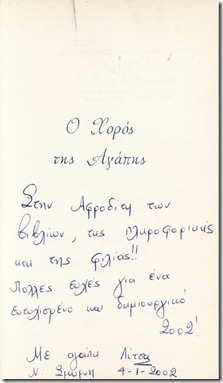 Ο Χορός
της Αγάπης
Στην Αφροδίτη των
βιβλίων, της πληροφορικής
και της φιλίας!!
Πολλές ευχές για ένα
ευτυχισμένο και δημιουργικό
2002!
Με αγάπη Λίτσα
Ν. Σμύρνη 4-1-2002